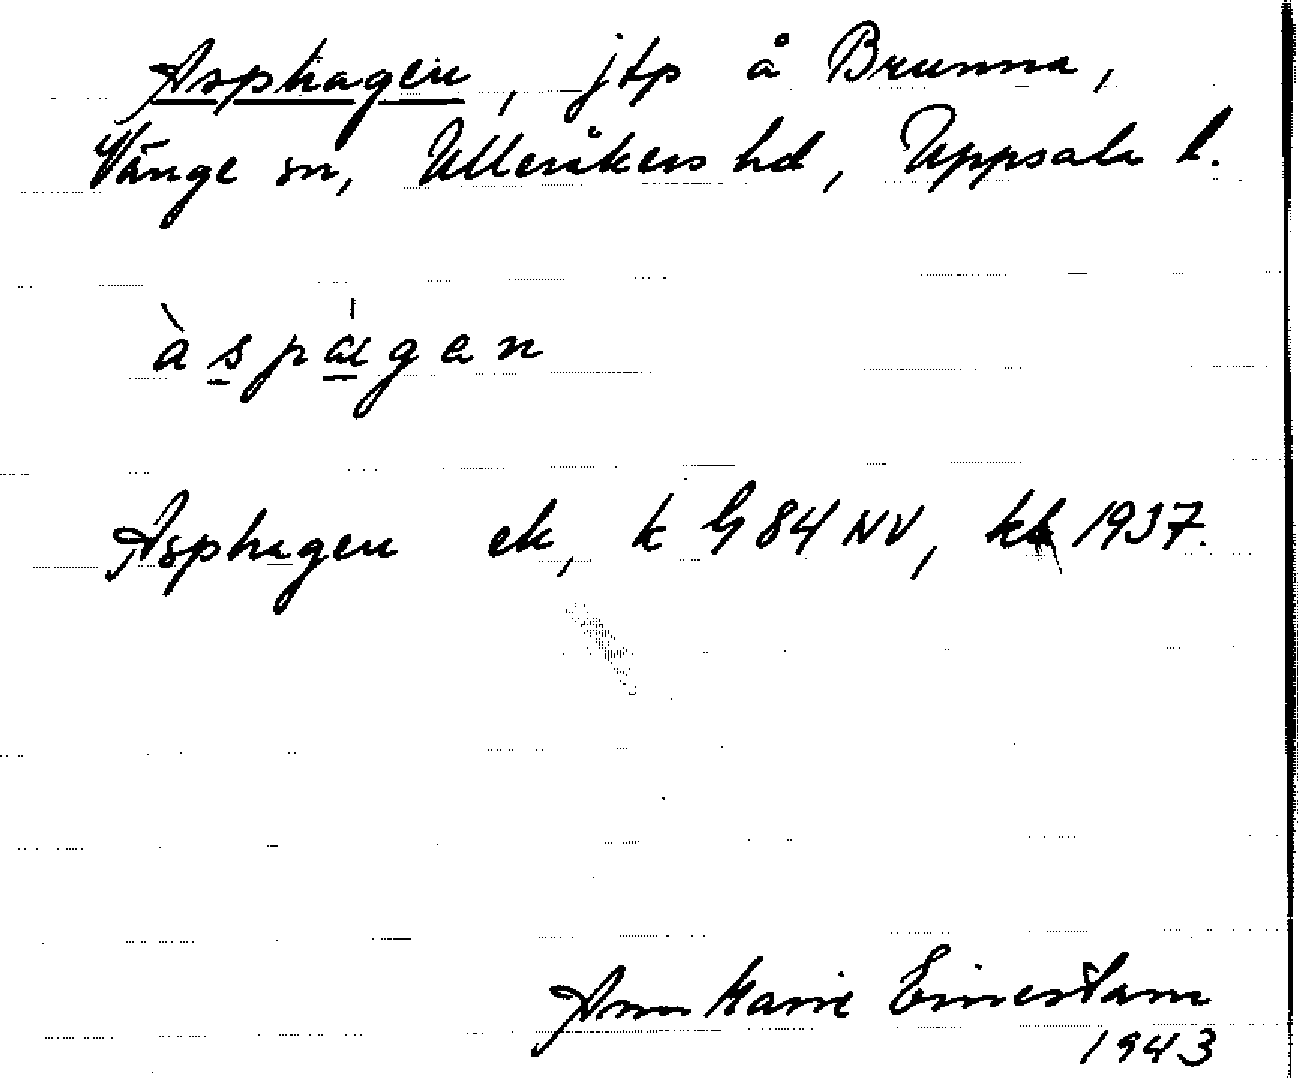 Asphagen, jtp å Brunna,
Vänge sn, Ulleråkers hd, Uppsala l.
àspágen
Asphagen ek, k G 84 NV, kb 1937.
Ann Marie
1943